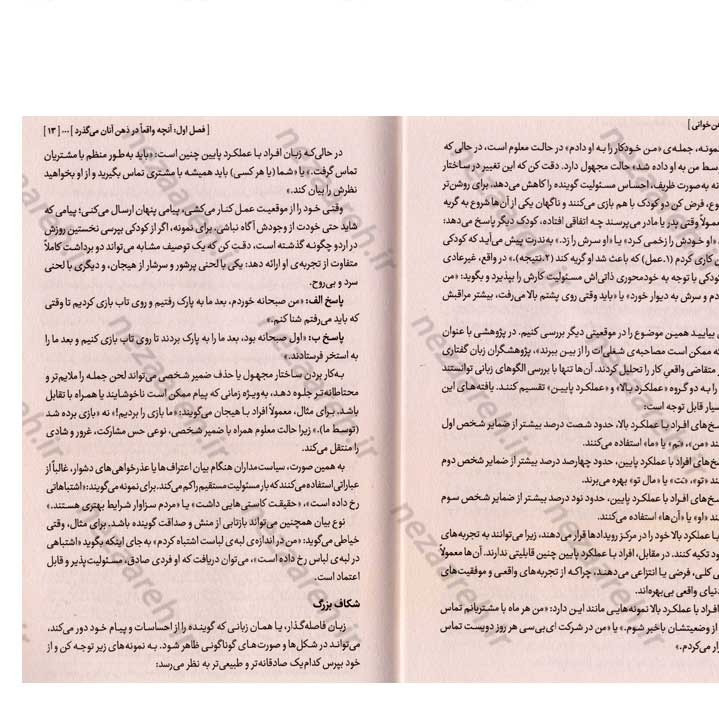 ن‌خوانی]
نمونه، جمله‌ی «من خودکار را به او دادم» در حالت معلوم است، در حالی‌که
وسط من به او داده شد» حالت مجهول دارد. دقت کن که این تغییر در ساختار
نه به‌صورت ظریف، احساس مسئولیت گوینده را کاهش می‌دهد. برای روشن‌تر
وع، فرض کن دو کودک با هم بازی می‌کنند و ناگهان یکی از آن‌ها شروع به گریه
عمولاً وقتی پدر یا مادر می‌پرسند چه اتفاقی افتاده، کودک دیگر پاسخ می‌دهد:
«او خودش را زخمی کرد» یا «او سرش را زد.» به‌ندرت پیش می‌آید که کودکی
ن کاری کردم (۱.عمل) که باعث شد او گریه کند (۲.نتیجه).» در واقع، غیرعادی
کودکی با توجه به خودمحوری ذاتی‌اش مسئولیت کارش را بپذیرد و بگوید: «من
دم و سرش به دیوار خورد» یا «باید وقتی روی پشتم بالا می‌رفت، بیشتر مراقبش
بیایید همین موضوع را در موقعیتی دیگر بررسی کنیم. در پژوهشی با عنوان
که ممکن است مصاحبه‌ی شغلی‌ات را از بین ببرند»، پژوهشگران زبان گفتاری
متقاضی واقعی کار را تحلیل کردند. آن‌ها تنها با بررسی الگوهای زبانی توانستند
را به دو گروه «عملکرد بالا» و «عملکرد پایین» تقسیم کنند. یافته‌های این
سیار قابل توجه است:
سخ‌های افراد با عملکرد بالا، حدود شصت درصد بیشتر از ضمایر شخص اول
ند «من»، «َم» یا «ما» استفاده می‌کنند.
سخ‌های افراد با عملکرد پایین، حدود چهارصد درصد بیشتر از ضمایر شخص دوم
ند «تو»، «َت» یا «مال تو» بهره می‌برند.
سخ‌های افراد با عملکرد پایین، حدود نود درصد بیشتر از ضمایر شخص سوم
ند «او» یا «آن‌ها» استفاده می‌کنند.
با عملکرد بالا خود را در مرکز رویدادها قرار می‌دهند، زیرا می‌توانند به تجربه‌های
ود تکیه کنند. در مقابل، افراد با عملکرد پایین چنین قابلیتی ندارند. آن‌ها معمولاً
ی کلی، فرضی یا انتزاعی می‌دهند، چراکه از تجربه‌های واقعی و موفقیت‌های
دنیای واقعی بی‌بهره‌اند.
افراد با عملکرد بالا نمونه‌هایی مانند این دارد: «من هر ماه با مشتریانم تماس
از وضعیتشان باخبر شوم.» یا «من در شرکت ای‌بی‌سی هر روز دویست تماس
رار می‌کردم.»
[فصل اول: آنچه واقعاً در ذهن آنان می‌گذرد] ... [۱۳]
در حالی‌که زبان افراد با عملکرد پایین چنین است: «باید به‌طور منظم با مشتریان
تماس گرفت.» یا «شما (یا هر کسی) باید همیشه با مشتری تماس بگیرید و از او بخواهید
نظرش را بیان کند.»
وقتی خود را از موقعیت عمل کنار می‌کشی، پیامی پنهان ارسال می‌کنی؛ پیامی که
شاید حتی خودت از وجودش آگاه نباشی. برای نمونه، اگر از کودکی بپرسی نخستین روزش
در اردو چگونه گذشته است، دقت کن که یک توصیف مشابه می‌تواند دو برداشت کاملاً
متفاوت از تجربه‌ی او ارائه دهد: یکی با لحنی پرشور و سرشار از هیجان، و دیگری با لحنی
سرد و بی‌روح.
پاسخ الف: «من صبحانه خوردم، بعد ما به پارک رفتیم و روی تاب بازی کردیم تا وقتی
که باید می‌رفتم شنا کنم.»
پاسخ ب: «اول صبحانه بود، بعد ما را به پارک بردند تا روی تاب بازی کنیم و بعد ما را
به استخر فرستادند.»
به‌کار بردن ساختار مجهول یا حذف ضمیر شخصی می‌تواند لحن جمله را ملایم‌تر و
محتاطانه‌تر جلوه دهد، به‌ویژه زمانی که پیام ممکن است ناخوشایند یا همراه با تقابل
باشد. برای مثال، معمولاً افراد با هیجان می‌گویند: «ما بازی را بردیم!» نه «بازی برده شد
(توسط ما).» زیرا حالت معلوم همراه با ضمیر شخصی، نوعی حس مشارکت، غرور و شادی
را منتقل می‌کند.
به همین صورت، سیاست‌مداران هنگام بیان اعتراف‌ها یا عذرخواهی‌های دشوار، غالباً از
عباراتی استفاده می‌کنند که بار مسئولیت مستقیم را کم می‌کند. برای نمونه می‌گویند: «اشتباهاتی
رخ داده است.»، «حقیقت کاستی‌هایی داشت» یا «مردم سزاوار شرایط بهتری هستند.»
نوع بیان همچنین می‌تواند بازتابی از منش و صداقت گوینده باشد. برای مثال، وقتی
خیاطی می‌گوید: «من در اندازه‌ی لبه‌ی لباس اشتباه کردم» به جای اینکه بگوید «اشتباهی
در لبه‌ی لباس رخ داده است»، می‌توان دریافت که او فردی صادق، مسئولیت‌پذیر و قابل
اعتماد است.
شکاف بزرگ
زبان فاصله‌گذار، یا همان زبانی که گوینده را از احساسات و پیام خود دور می‌کند،
می‌تواند در شکل‌ها و صورت‌های گوناگونی ظاهر شود. به نمونه‌های زیر توجه کن و از
خود بپرس کدام‌یک صادقانه‌تر و طبیعی‌تر به نظر می‌رسد:
nezaareh.ir